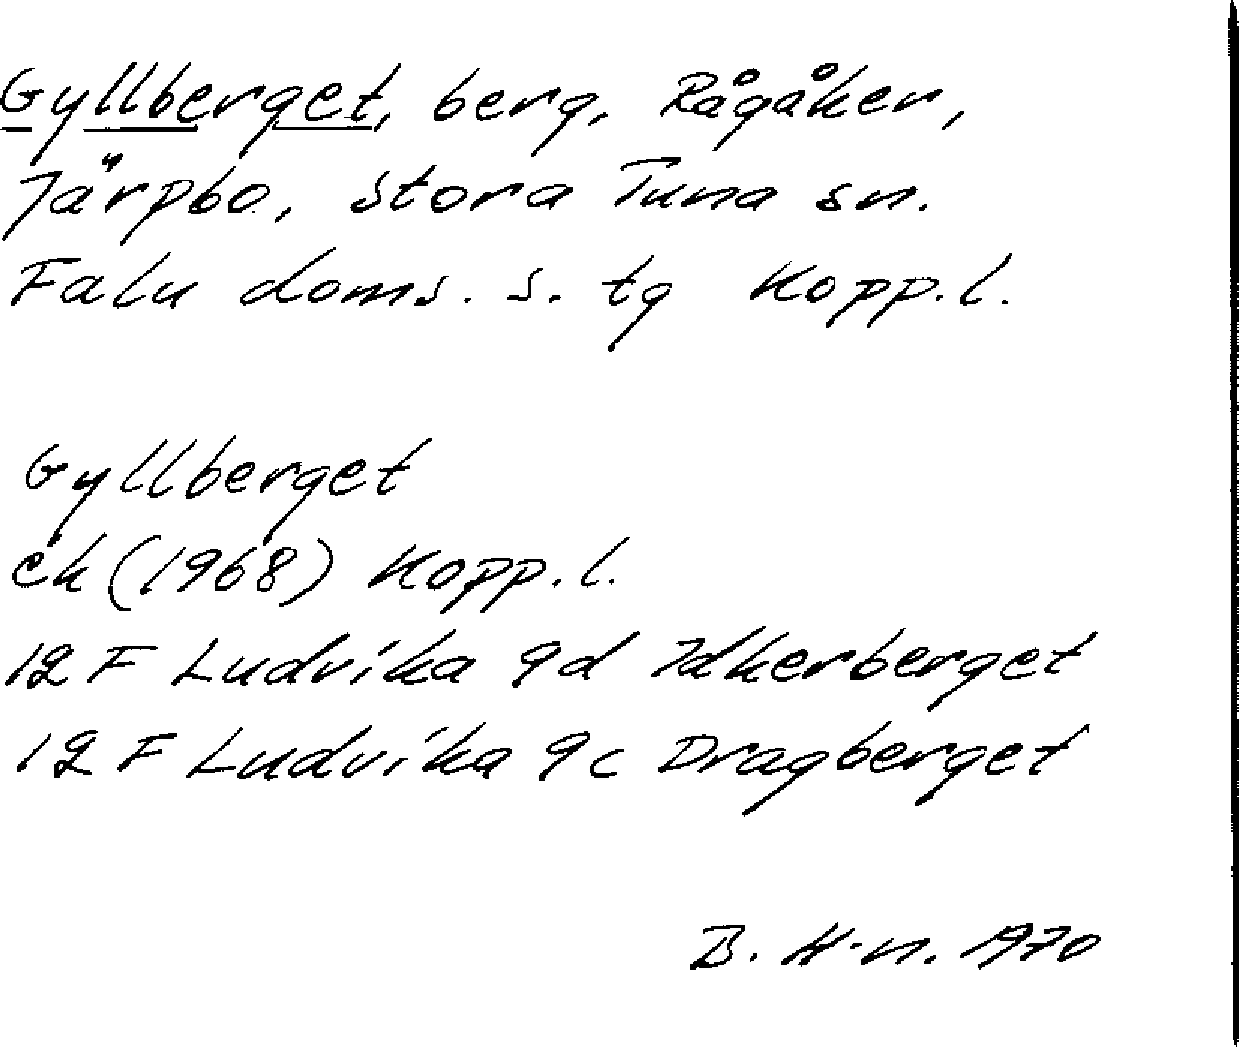 Gyllberget, berg, Rågåker,
Järpbo, Stora Tuna sn.
Falu doms. s. tg Kopp.l.
Gyllberget
ek (1968) Kopp.l.
12 F Ludvika 9d Idkerberget
12 F Ludvika 9c Dragberget
B. H-n. 1970